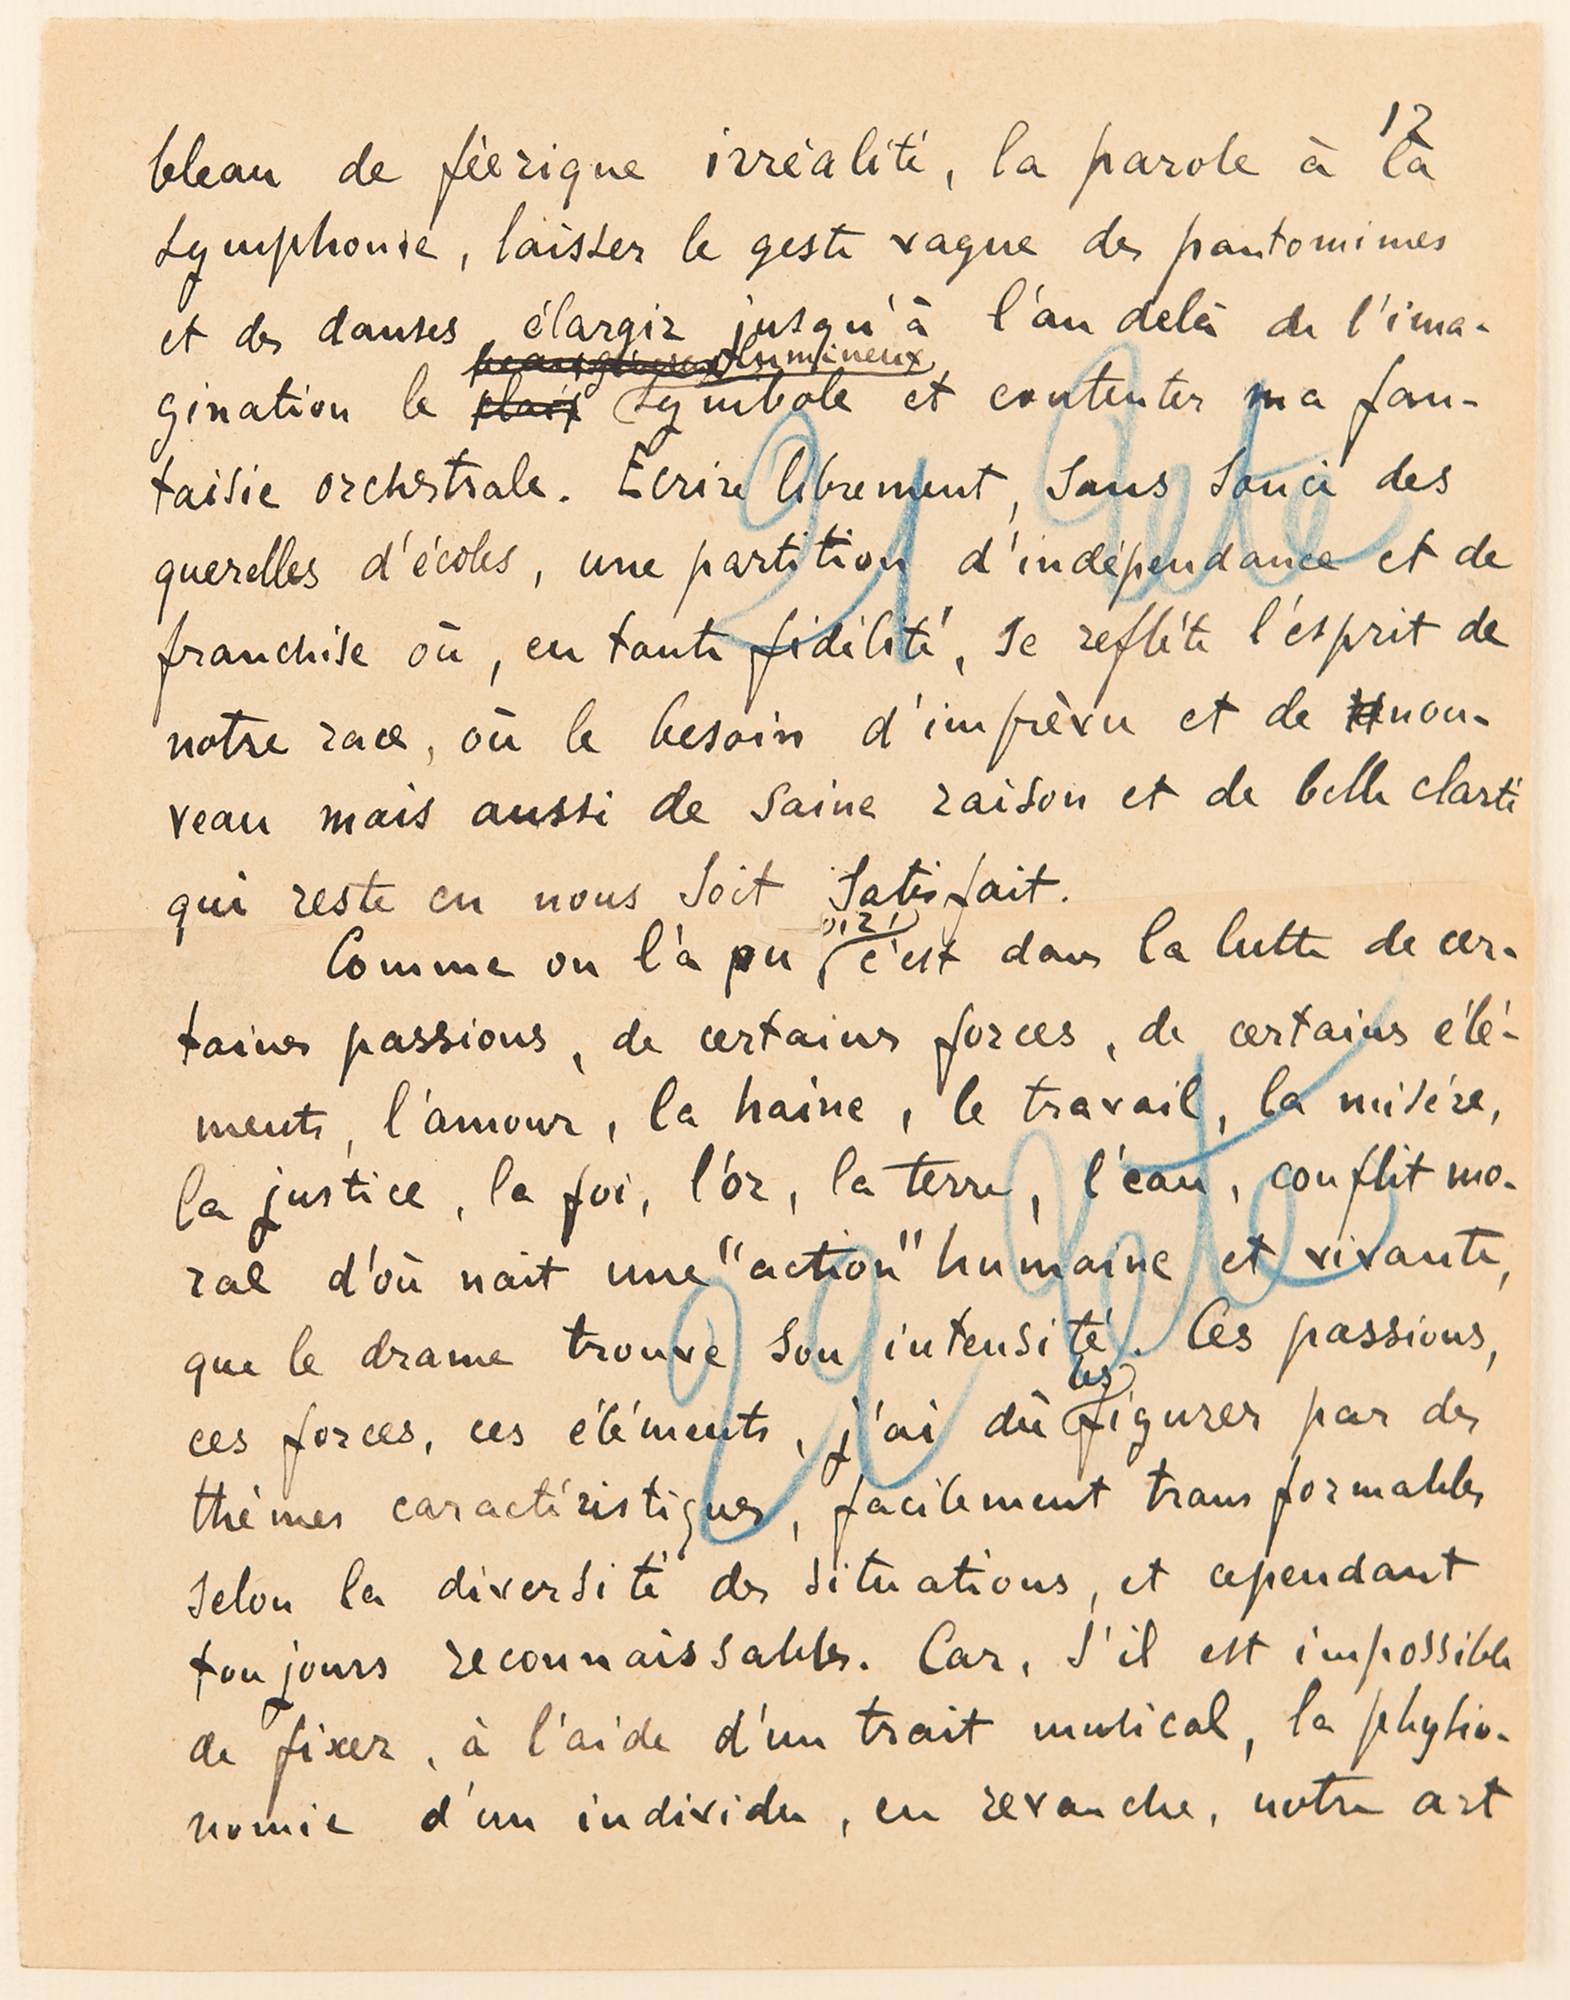 12
bleau de féerique irréalité, la parole à la
symphonie, laisser le geste vague des pantomimes
et des danses élargir jusqu'à l'au delà de l'ima-
lumineux
gination le clair symbole et contenter ma fan-
taisie orchestrale. Ecrire librement, sans souci des
querelles d'écoles, une partition d'indépendance et de
franchise où, en toute fidélité, se reflète l'esprit de
notre race, où le besoin d'imprévu et de nou-
veau mais aussi de saine raison et de belle clarté
qui reste en nous soit satisfait.
Comme on l'a pu c'est dans la lutte de cer-
taines passions, de certaines forces, de certains élé-
ments, l'amour, la haine, le travail, la misère,
la justice, la foi, l'or, la terre, l'eau, conflit mo-
ral d'où nait une "action" humaine et vivante,
que le drame trouve son intensité. Ces passions,
les
ces forces, ces éléments, j'ai dû figurer par des
thèmes caractéristiques, facilement transformables
selon la diversité des situations, et cependant
toujours reconnaissables. Car, s'il est impossible
de fixer, à l'aide d'un trait musical, la physio-
nomie d'un individu, en revanche, notre art